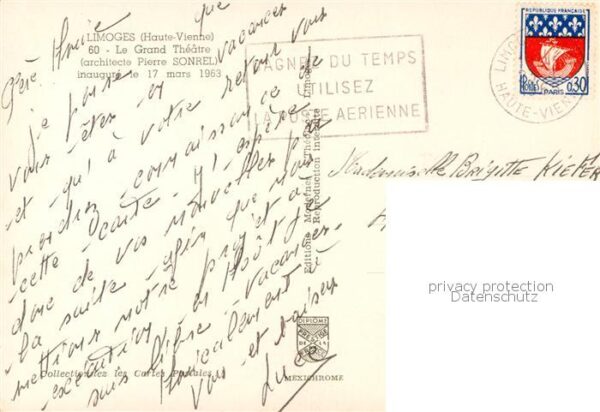 LIMOGES (Haute-Vienne)
60 - Le Grand Théâtre
(architecte Pierre SONREL)
inauguré le 17 mars 1963
Chère Amie
Je pense que
vous êtes en vacances
et qu'à votre retour vous
prendrez connaissance de
cette carte. J'espère
de vos nouvelles
la suite afin que nous
mettions notre projet à
exécution. en Août je
suis libre. vacances.
Amicalement à
vous et baisers
Luce
GAGNEZ DU TEMPS
UTILISEZ
LA POSTE AERIENNE
REPUBLIQUE FRANÇAISE
POSTES
0,30
PARIS
LIMOGES
HAUTE-VIENNE
Mademoiselle Brigitte
Reproduction interdite
privacy protection
Datenschutz
DIPLOME
PRESTIGE
DE LA
Collectionnez les Cartes Postales
MEXICHROME